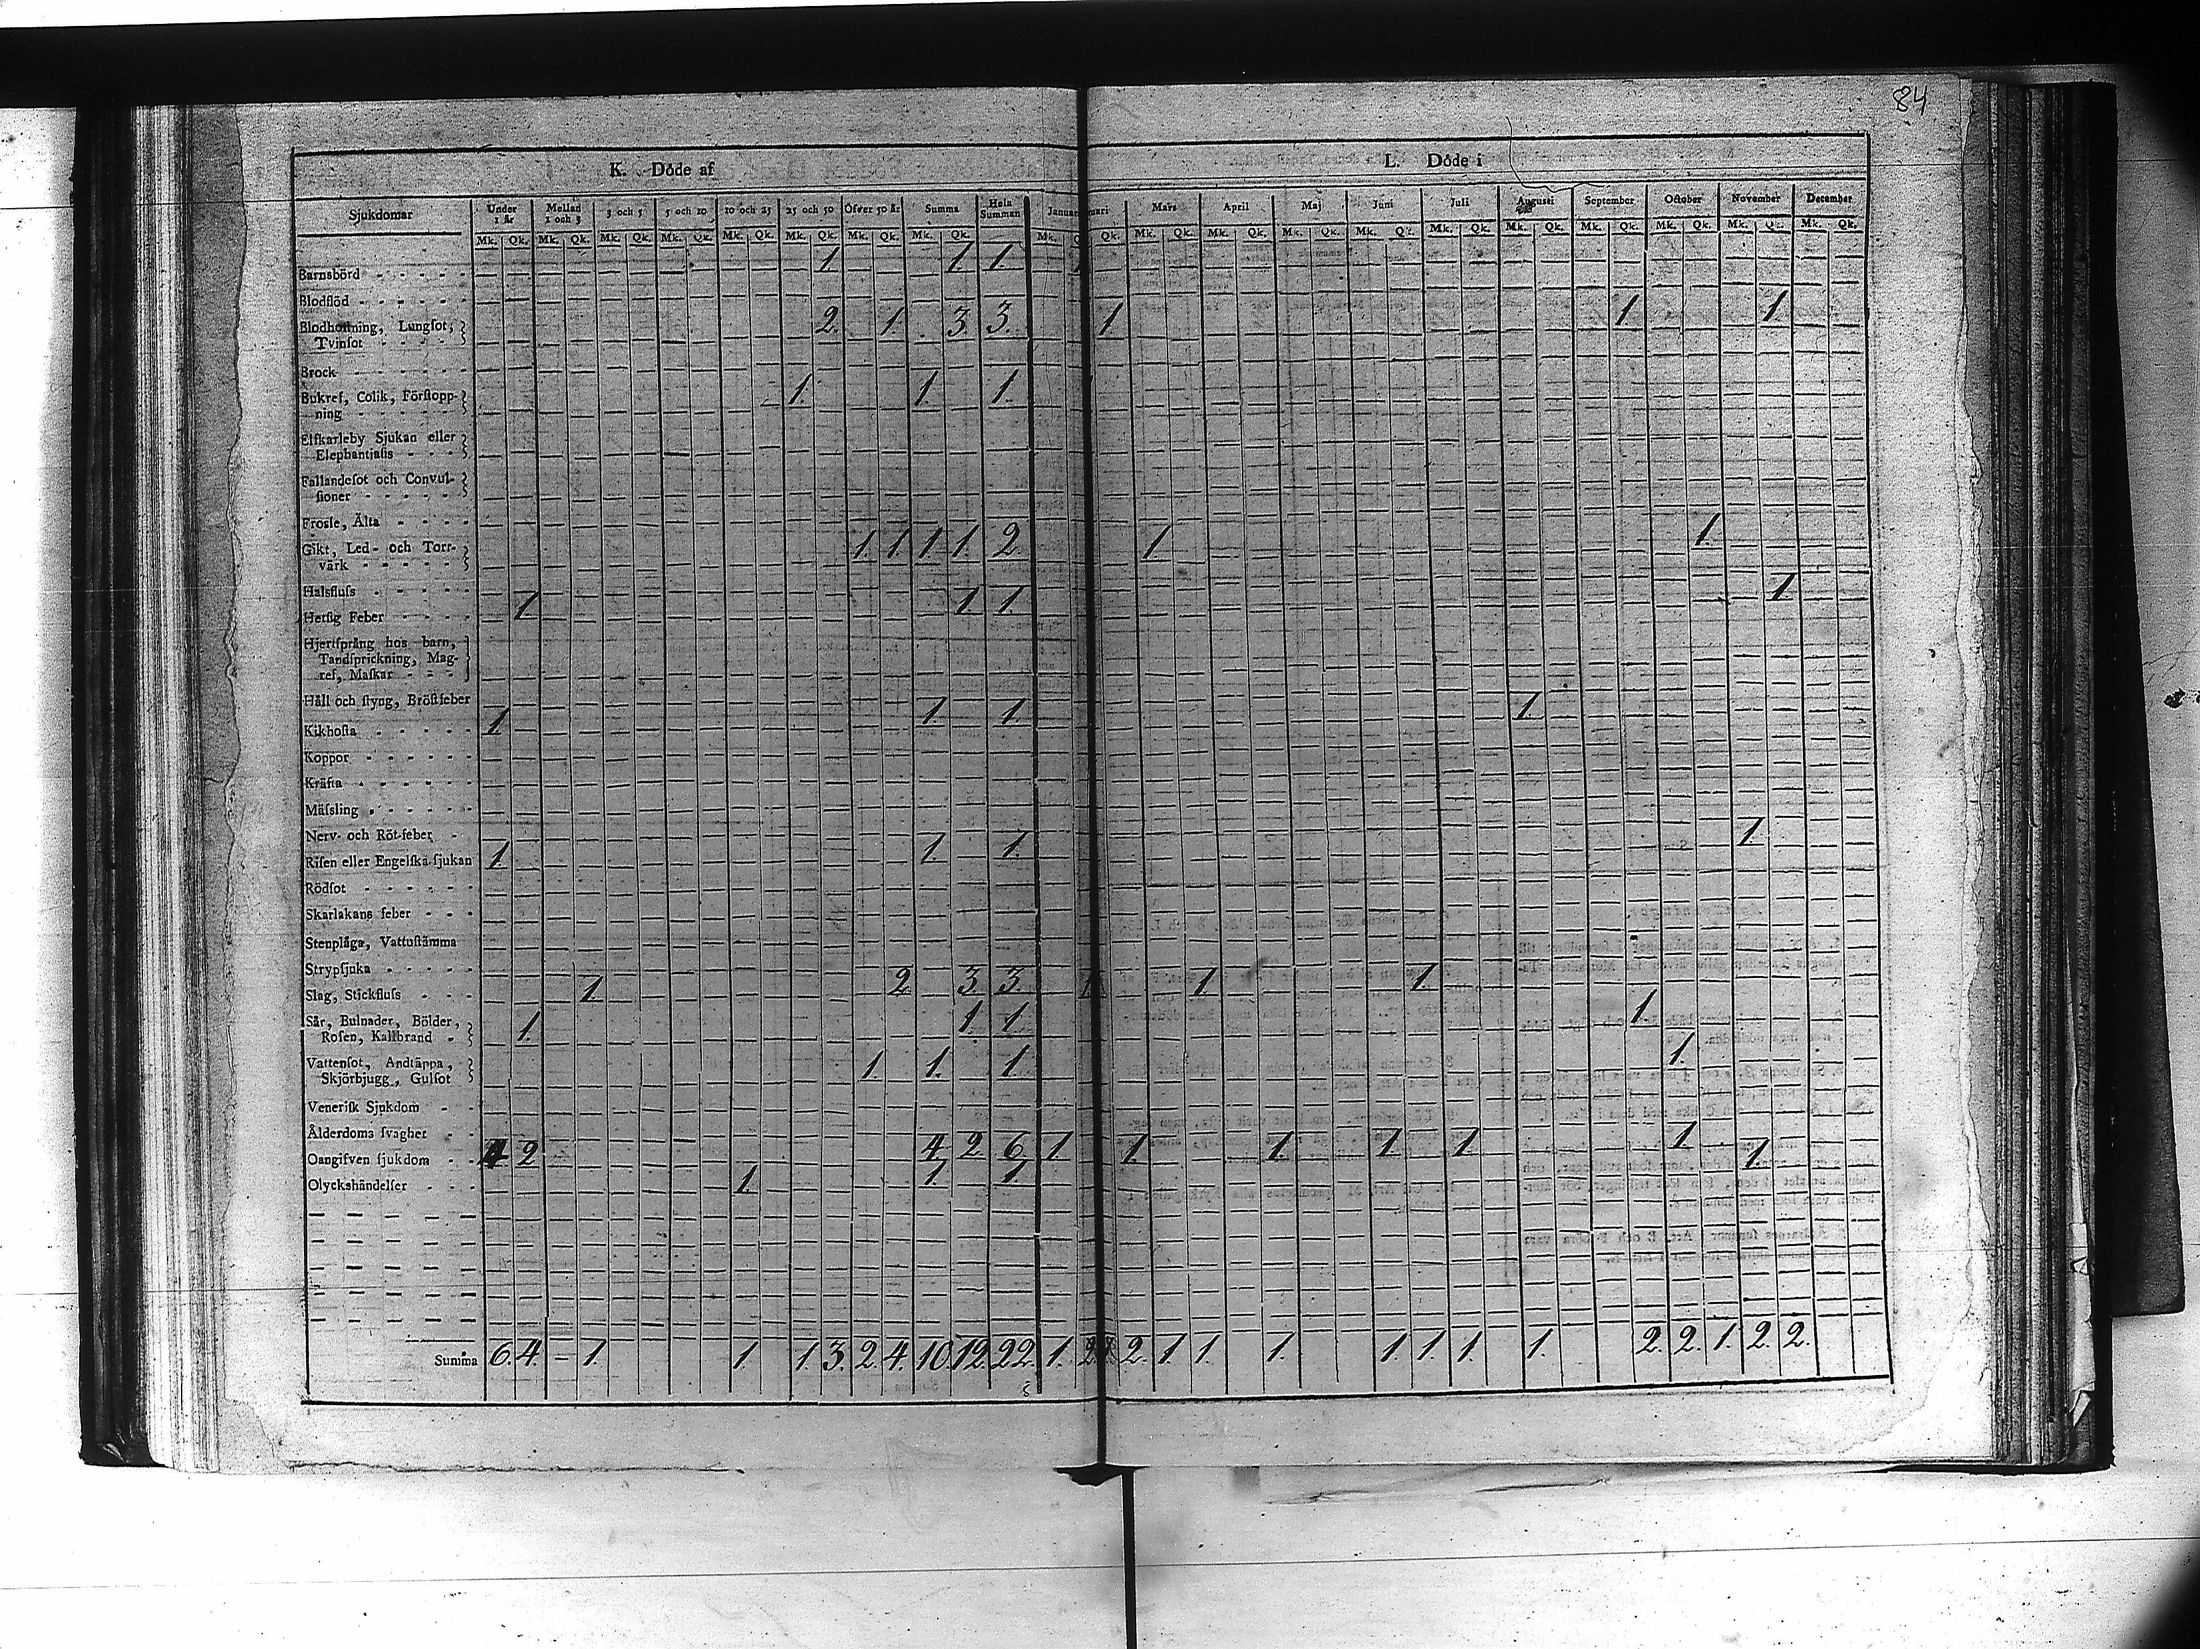 84
K. Döde af
L. Döde i
Sjukdomar Under 1 år Mellan 1 och 3 3 och 5 5 och 10 10 och 25 25 och 50 Öfver 50 år Summa Hela Summan Januari Mars April Maj Juni Juli Augusti September October November December
Mk. Qk. Mk. Qk. Mk. Qk. Mk. Qk. Mk. Qk. Mk. Qk. Mk. Qk. Mk. Qk. Mk. Qk. Mk. Qk. Mk. Qk. Mk. Qk. Mk. Qk. Mk. Qk. Mk. Qk. Mk. Qk. Mk. Qk. Mk. Qk. Mk. Qk.
Barnsbörd 1. 1. 1.
Blodflöd
Blodhoſtning, Lungſot, 2. 1. 3. 3. 1 1 1
Tvinſot
Brock
Bukref, Colik, Förſtopp- 1. 1. 1.
ning
Elfkarleby Sjukan eller
Elephantiaſis
Fallandeſot och Convul-
ſioner
Frosſe, Älta
Gikt, Led- och Torr- 1. 1. 1. 1. 2. 1. 1.
värk
Halsfluſs
Hetſig Feber 1. 1. 1. 1.
Hjertſprång hos barn,
Tandſprickning, Mag-
ref, Maſkar
Håll och ſtyng, Bröſtfeber
Kikhoſta 1. 1. 1. 1.
Koppor
Kräfta
Mäſsling
Nerv- och Röt-feber
Riſen eller Engelſka ſjukan 1. 1. 1. 1.
Rödſot
Skarlakans feber
Stenplåga, Vattuſtämma
Strypſjuka
Slag, Stickfluſs 1. 2. 3. 3. 1 1. 1.
Sår, Bulnader, Bölder, 1. 1. 1. 1.
Roſen, Kallbrand
Vattenſot, Andtäppa, 1. 1. 1. 1.
Skjörbjugg, Gulſot
Veneriſk Sjukdom
Ålderdoms ſvaghet
Oangifven ſjukdom 4 2. 4. 2. 6. 1. 1. 1. 1. 1. 1. 1.
Olyckshändelſer 1. 1. 1.
Summa 6. 4. – 1. 1. 1. 3. 2. 4. 10. 12. 22. 1. 2. 2. 1. 1. 1. 1. 1. 1. 1. 2. 2. 1. 2. 2.